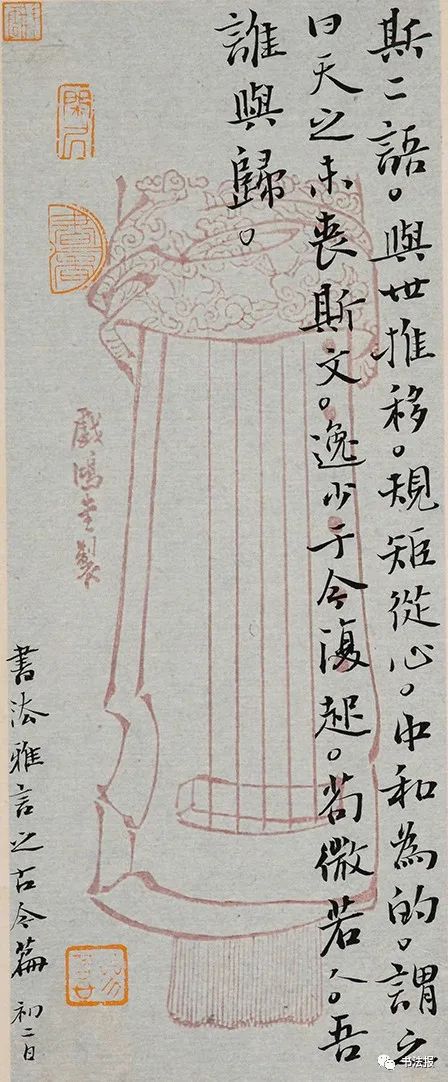 斯二語。與世推移。規矩從心。中和為的。謂之
曰天之未喪斯文。逸少于今復起。苟微若人。吾
誰與歸。
戲鴻堂製
書法雅言之古今篇 初二日
书法报